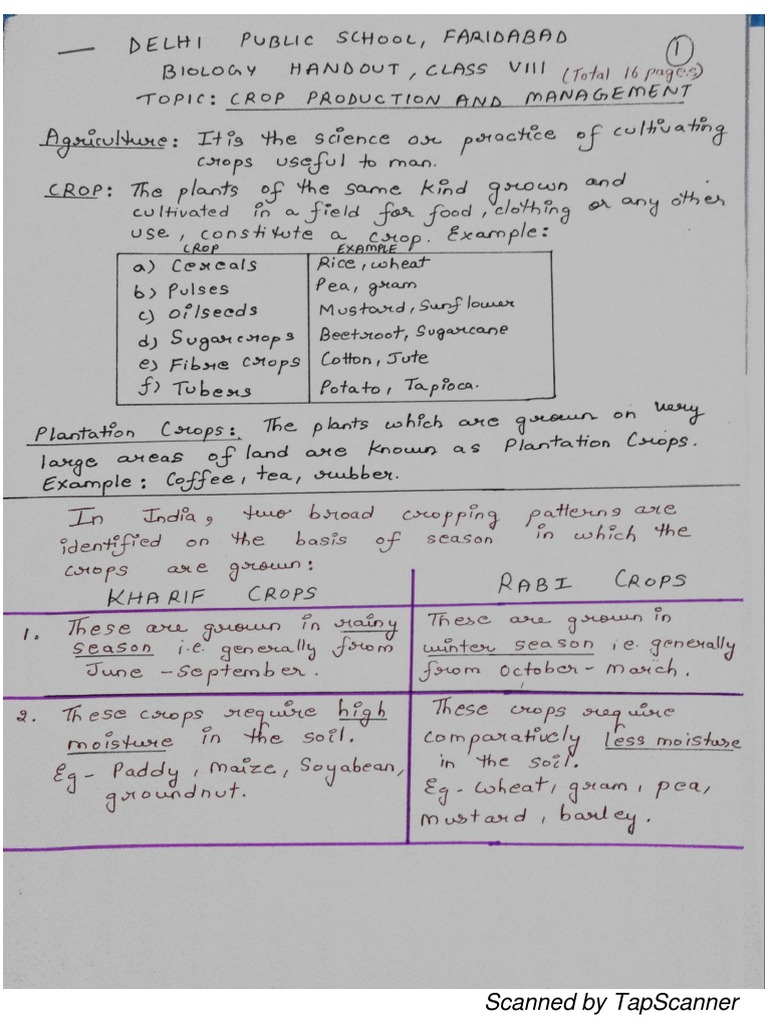 DELHI PUBLIC SCHOOL, FARIDABAD
1
BIOLOGY HANDOUT, CLASS VIII (Total 16 pages)
TOPIC: CROP PRODUCTION AND MANAGEMENT
Agriculture: It is the science or practice of cultivating
crops useful to man.
CROP: The plants of the same kind grown and
cultivated in a field for food, clothing or any other
use, constitute a crop. Example:
CROP EXAMPLE
a) Cereals Rice, wheat
b) Pulses Pea, gram
c) Oilseeds Mustard, Sunflower
d) Sugarcrops Beetroot, Sugarcane
e) Fibre crops Cotton, Jute
f) Tubers Potato, Tapioca.
Plantation Crops: The plants which are grown on very
large areas of land are known as Plantation Crops.
Example: Coffee, tea, rubber.
In India, two broad cropping patterns are
identified on the basis of season in which the
crops are grown:
KHARIF CROPS
RABI CROPS
1. These are grown in rainy
season i.e. generally from
June - September.
These are grown in
winter season i.e. generally
from October - March.
2. These crops require high
moisture in the soil.
Eg - Paddy, Maize, Soyabean,
groundnut.
These crops require
comparatively less moisture
in the soil.
Eg - wheat, gram, pea,
mustard, barley.
Scanned by TapScanner